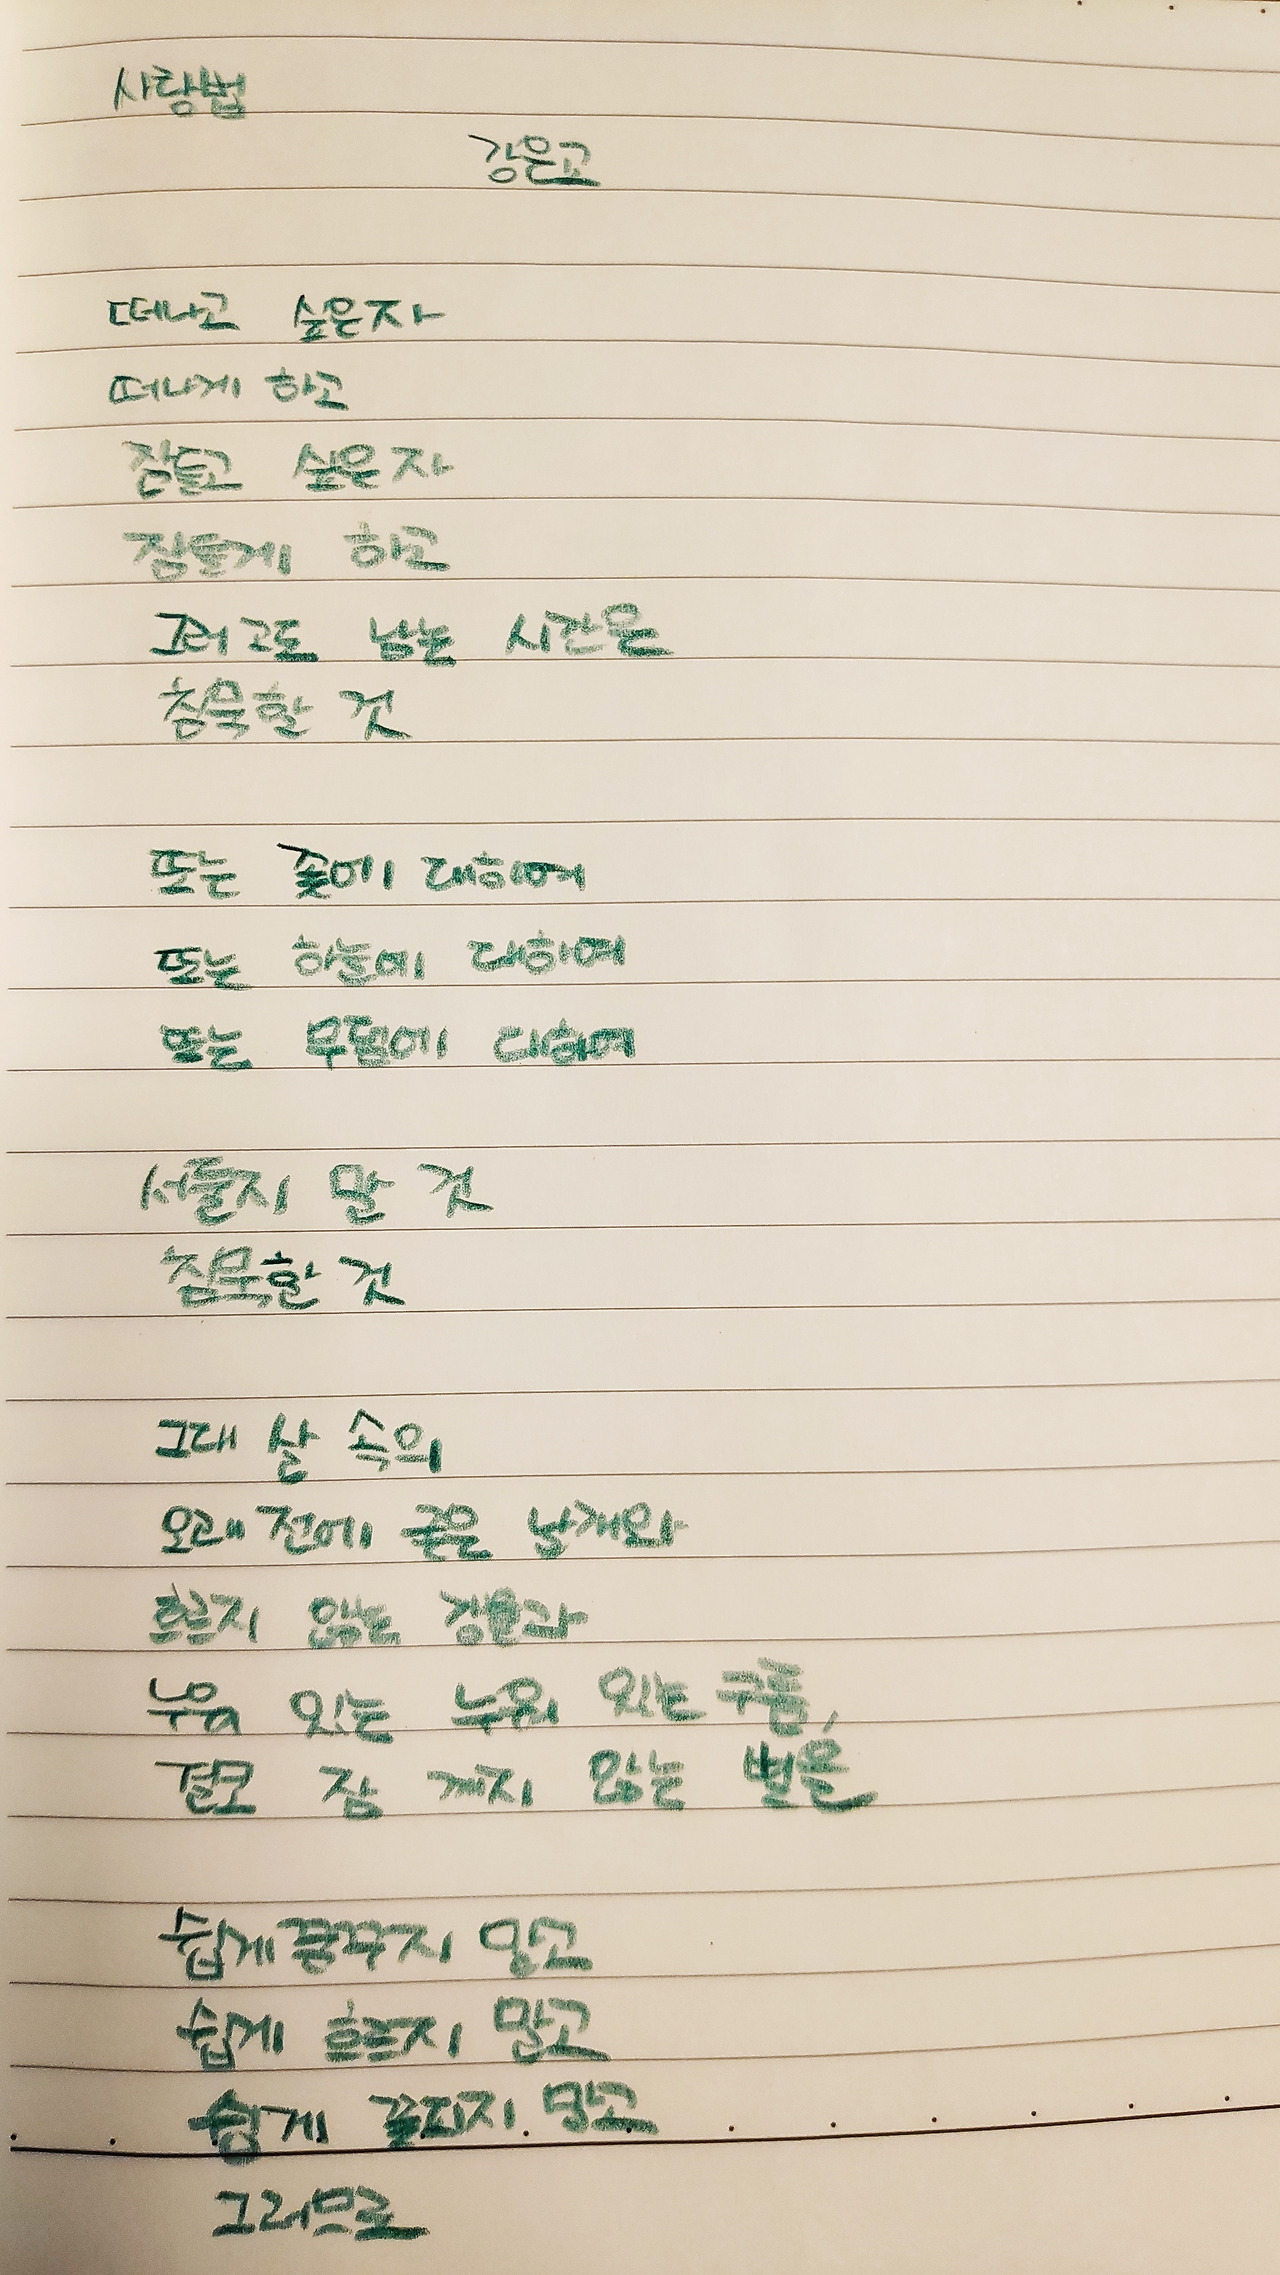 사랑법
강은교
떠나고 싶은자
떠나게 하고
잠들고 싶은자
잠들게 하고
그러고도 남는 시간은
침묵할 것
또는 꽃에 대하여
또는 하늘에 대하여
또는 무덤에 대하여
서둘지 말 것
침묵할 것
그대 살 속의
오래 전에 굳은 날개와
흐르지 않는 강물과
누워 있는 누워 있는 구름,
결코 잠 깨지 않는 별을
쉽게 꿈꾸지 말고
쉽게 흐르지 말고
쉽게 꽃피지 말고
그러므로